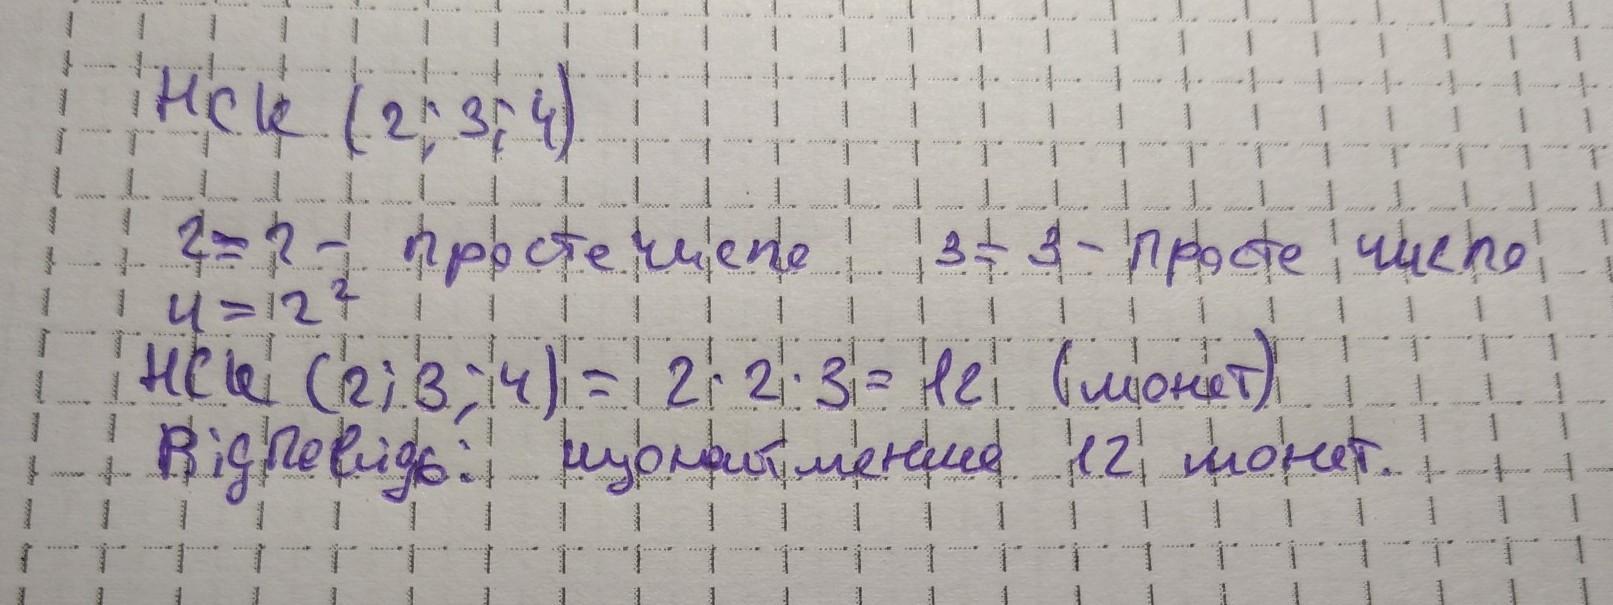 НСК (2; 3; 4)
2 = 2 - просте число 3 = 3 - просте число
4 = 2²
НСК (2; 3; 4) = 2 · 2 · 3 = 12 (монет)
Відповідь: щонайменше 12 монет.